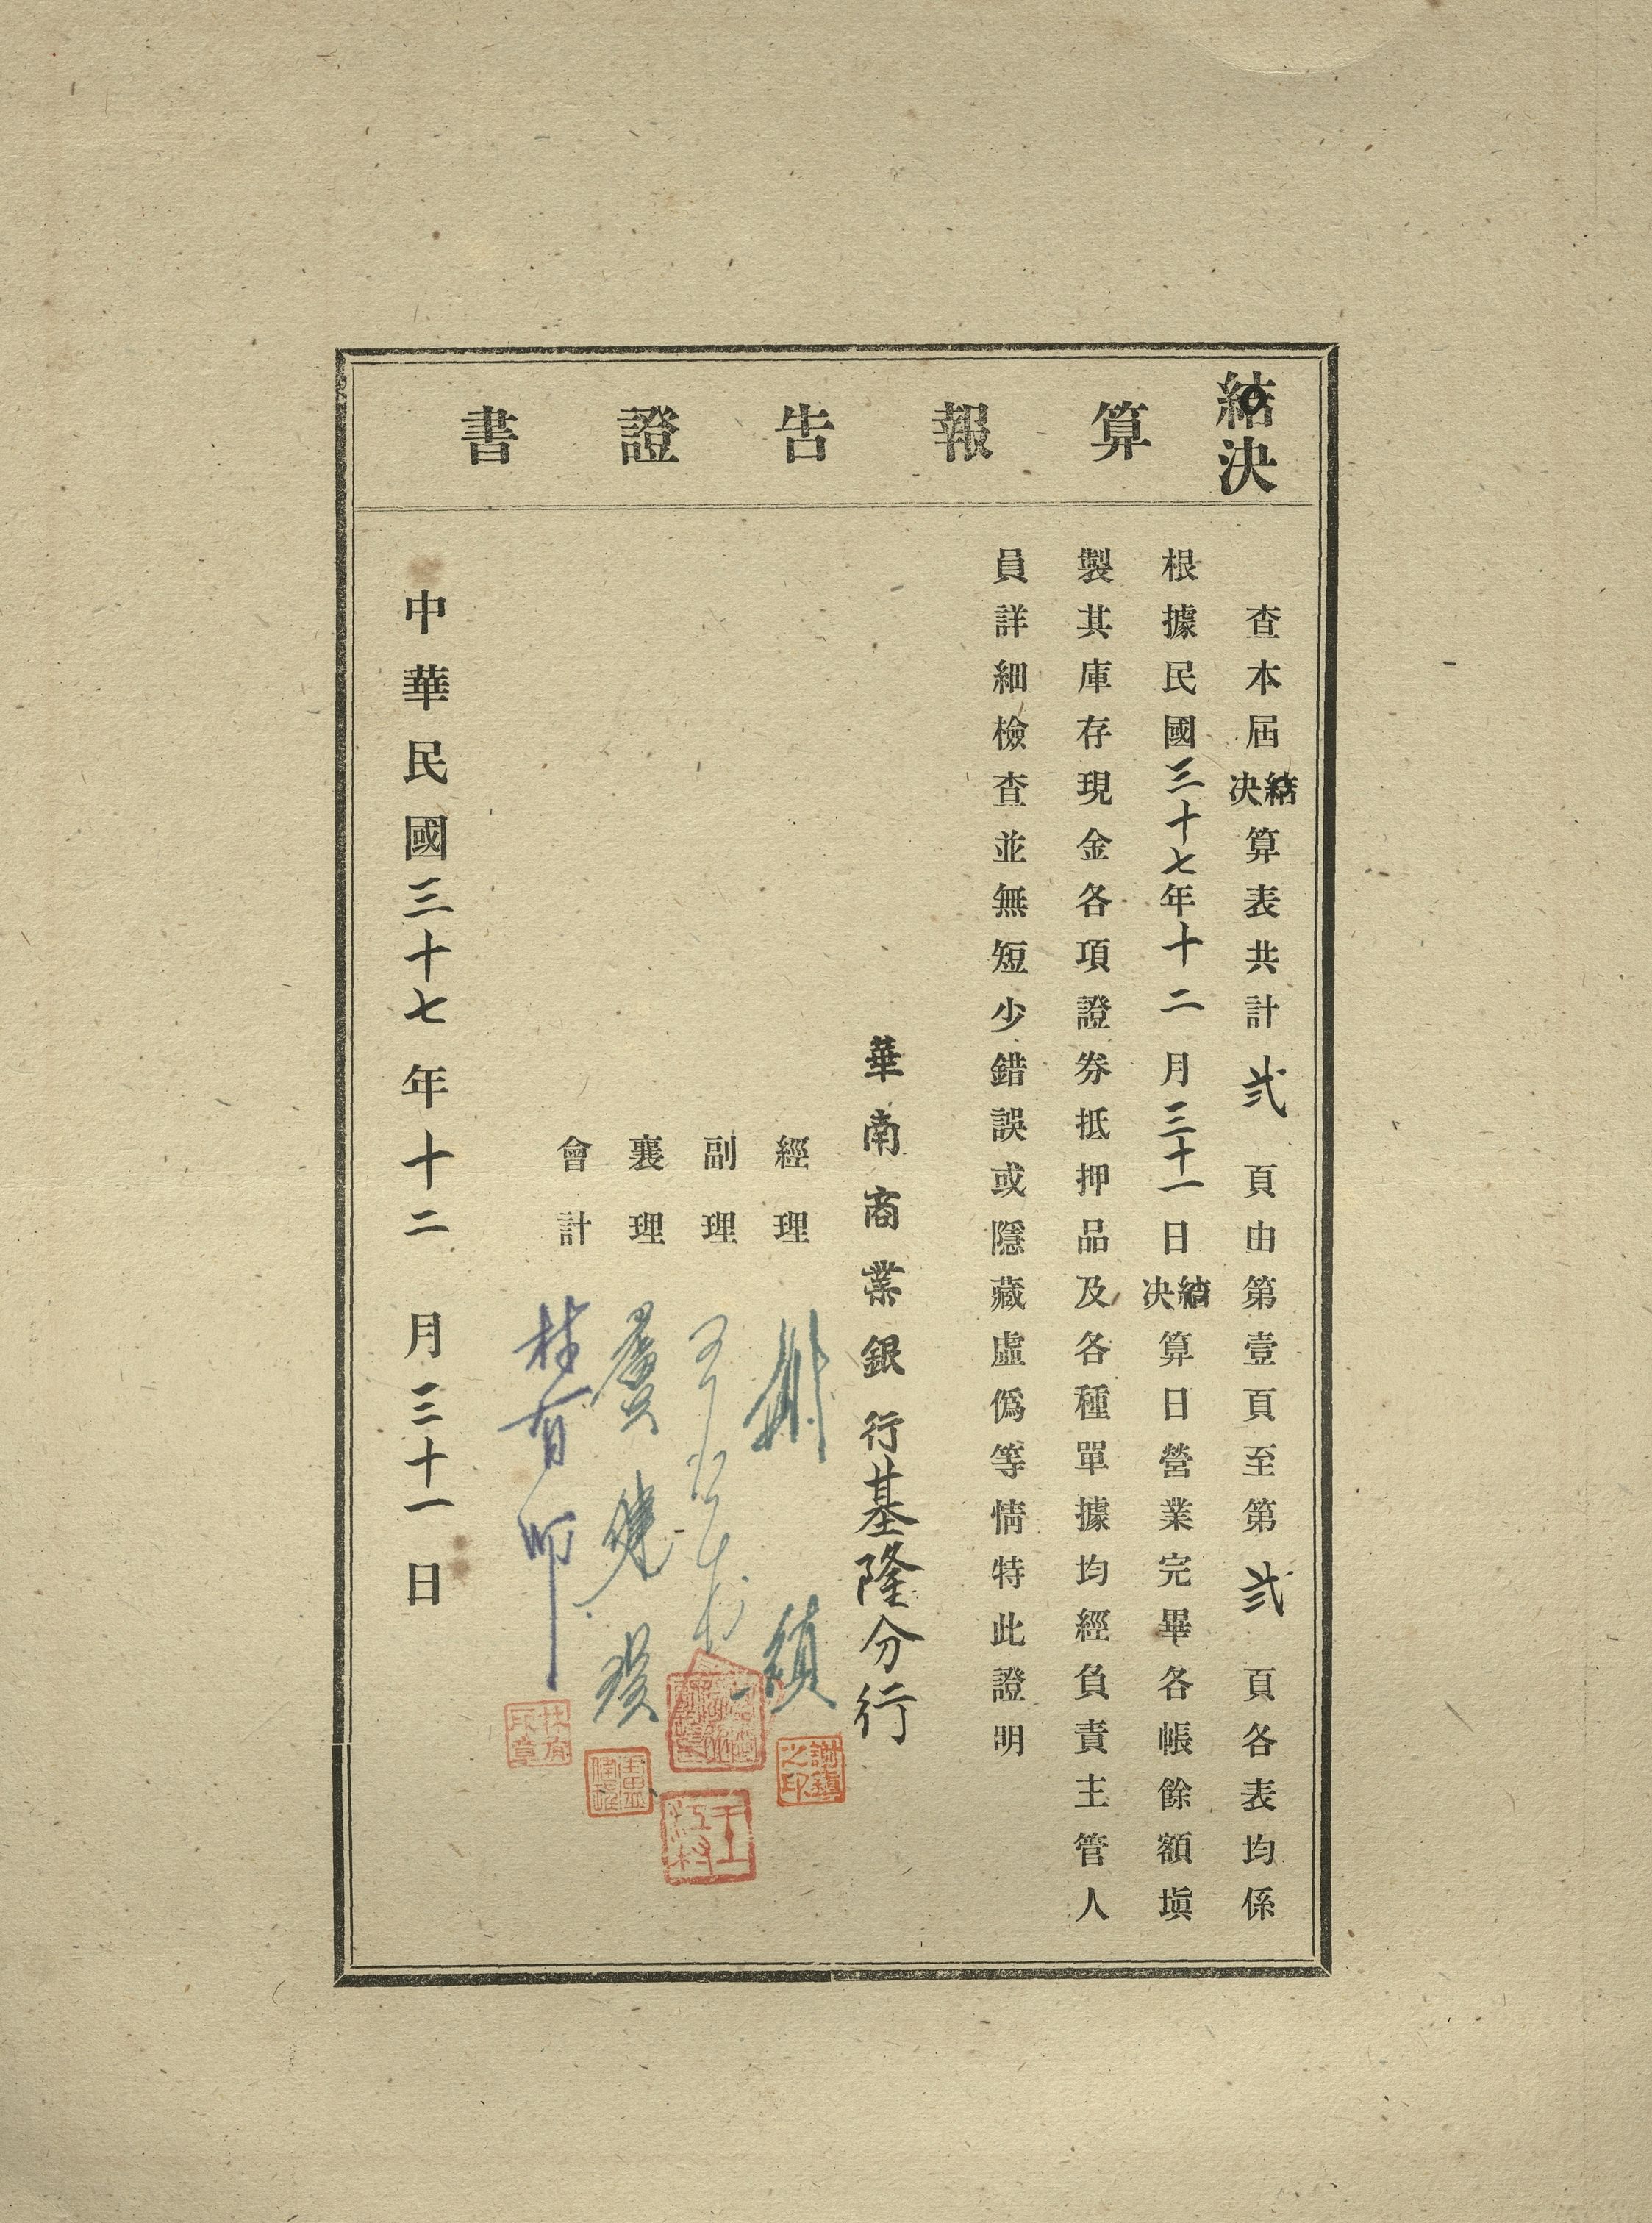 結決算報告證書
查本屆結決算表共計弍頁由第壹頁至第弍頁各表均係
根據民國三十七年十二月三十一日結決算日營業完畢各帳餘額塡
製其庫存現金各項證券抵押品及各種單據均經負責主管人
員詳細檢查並無短少錯誤或隱藏虛僞等情特此證明
華南商業銀行基隆分行
經理
謝鎮之印
副理
王江村
襄理
會計
林有所章
中華民國三十七年十二月三十一日